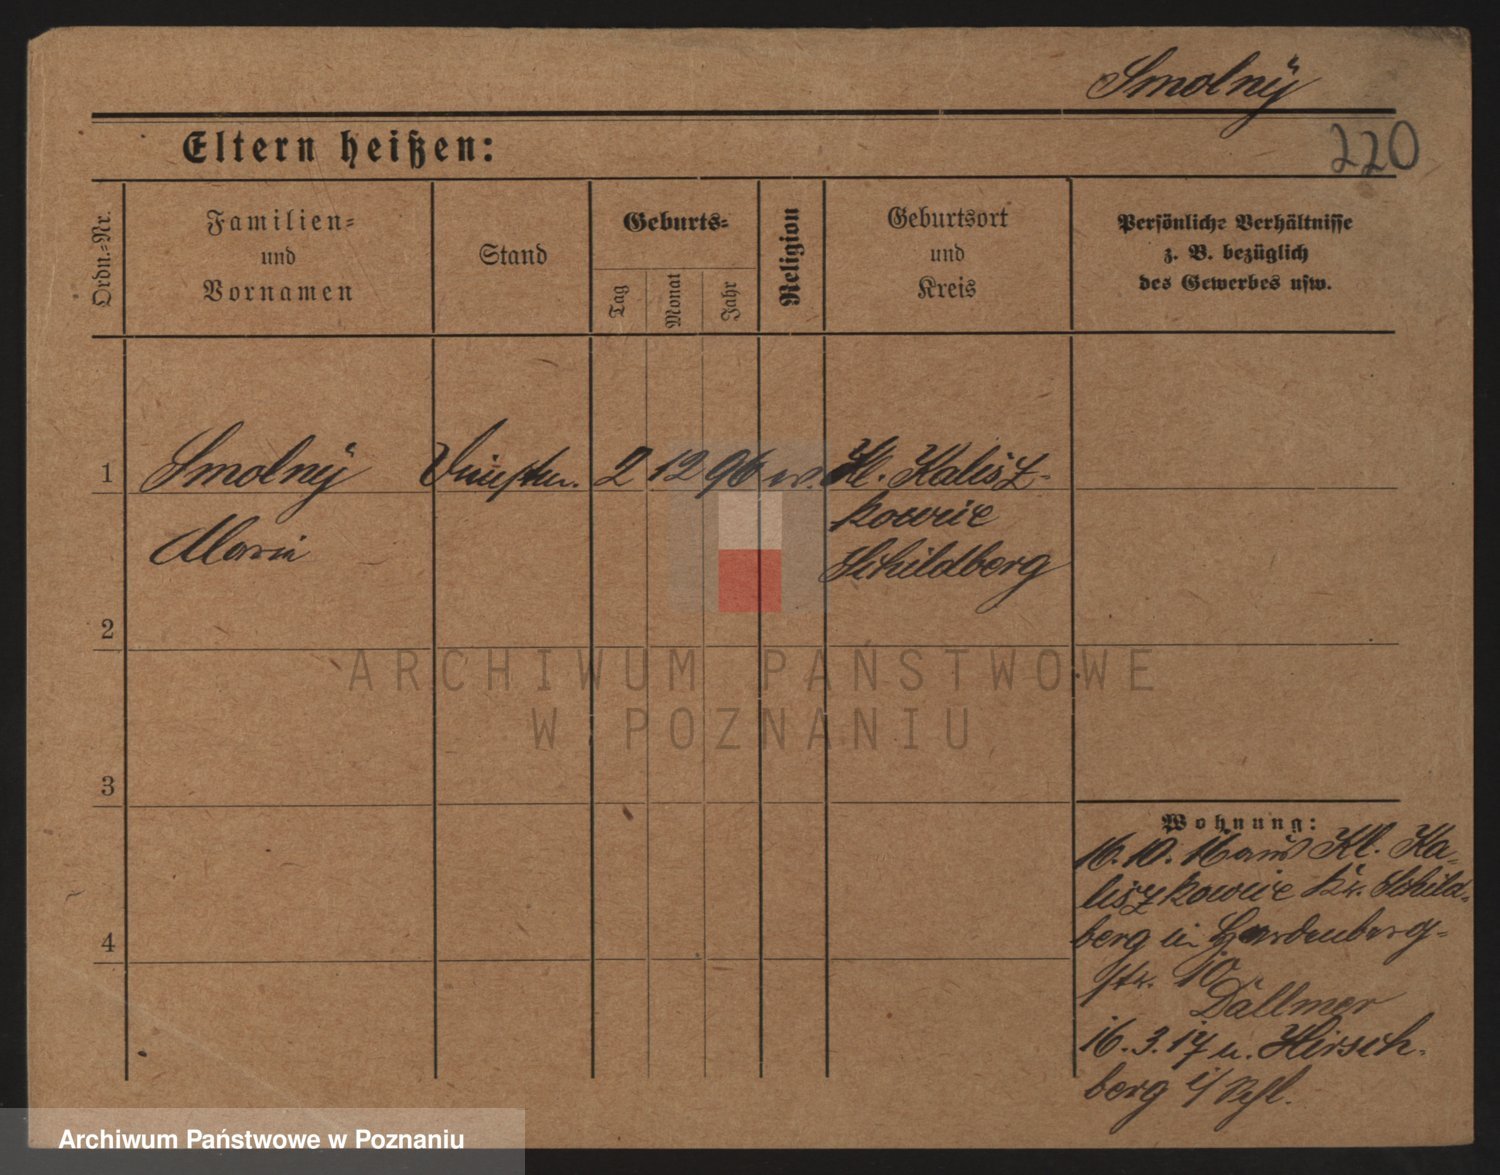 Smolny
220
Eltern heißen:
Ordn.-Nr.
Familien-
und
Vornamen
Stand
Geburts-
Tag
Monat
Jahr
Religion
Geburtsort
und
Kreis
Persönliche Verhältnisse
z. B. bezüglich
des Gewerbes usw.
1
Smolny
2 12 96
Kl. Kalisz-
kowice
Maria
Schildberg
2
3
4
Wohnung:
16.10.16 aus Kl. Ka-
liszkowice Kr. Schild-
berg in Hardenberg-
str. 10
Dällmer
16.3.17 n. Hirsch-
berg i/Schl.
ARCHIWUM PAŃSTWOWE
W POZNANIU
Archiwum Państwowe w Poznaniu